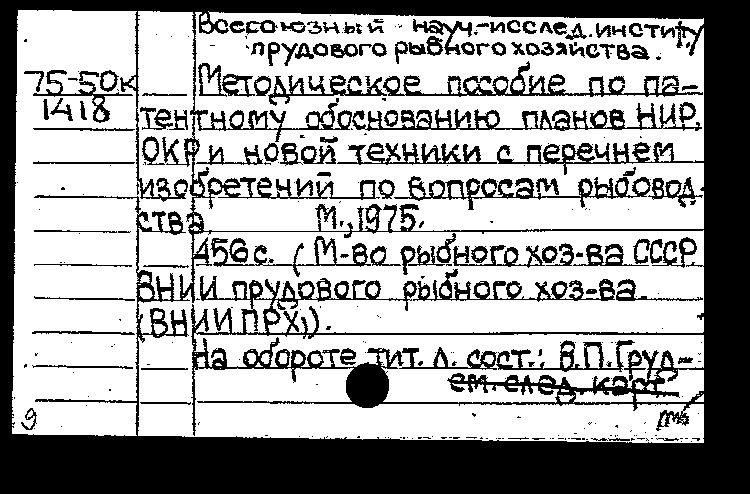 Всесоюзный науч.-исслед. институ
прудового рыбного хозяйства.
75-50к Методическое пособие по па-
1418 тентному обоснованию планов НИР,
ОКР и новой техники с перечнем
изобретений по вопросам рыбовод-
ства. М., 1975.
456 с. (М-во рыбного хоз-ва СССР
ВНИИ прудового рыбного хоз-ва.
(ВНИИПРХ)).
На обороте тит. л. сост.: В.П.Груд-
см. след. карт
9